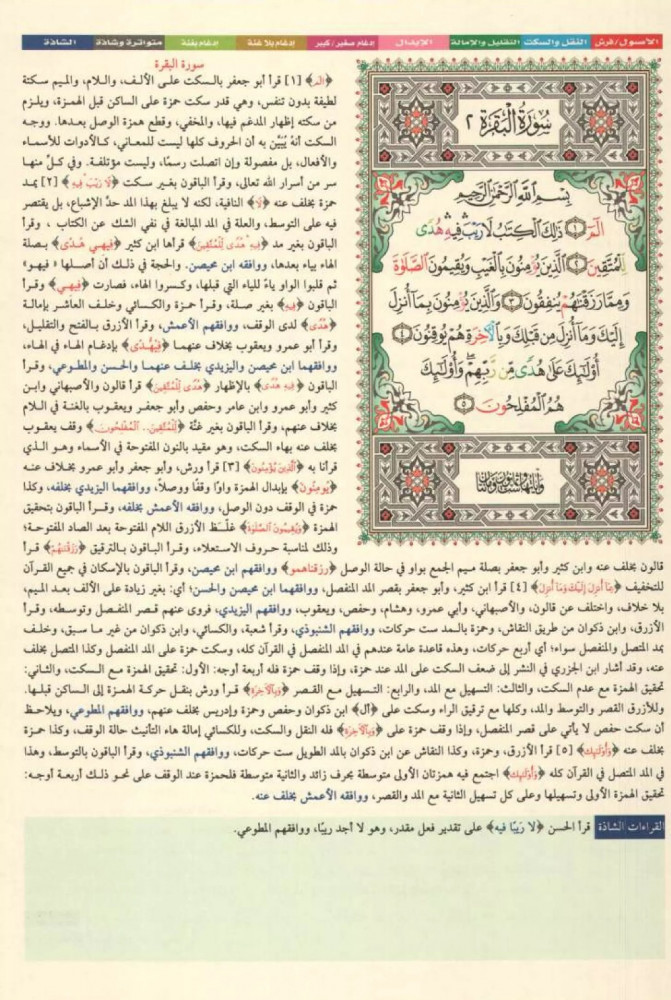 الأصول/فرش النقل والسكت التقليل والإمالة الإبدال إدغام صغير/كبير إدغام بلا غنة إدغام بغنة متواترة وشاذة الشاذة
سُورَةُ الْبَقَرَةِ ٢
بِسْمِ اللَّهِ الرَّحْمَٰنِ الرَّحِيمِ
الٓمٓ ١ ذَٰلِكَ الْكِتَٰبُ لَا رَيْبَ فِيهِ هُدًى
لِّلْمُتَّقِينَ ٢ الَّذِينَ يُؤْمِنُونَ بِالْغَيْبِ وَيُقِيمُونَ الصَّلَوٰةَ
وَمِمَّا رَزَقْنَٰهُمْ يُنفِقُونَ ٣ وَالَّذِينَ يُؤْمِنُونَ بِمَا أُنزِلَ
إِلَيْكَ وَمَا أُنزِلَ مِن قَبْلِكَ وَبِالْآخِرَةِ هُمْ يُوقِنُونَ ٤
أُولَٰئِكَ عَلَىٰ هُدًى مِّن رَّبِّهِمْ وَأُولَٰئِكَ
هُمُ الْمُفْلِحُونَ ٥
سورة البقرة
﴿الم﴾ [١] قرأ أبو جعفر بالسكت على الألف، واللام، والميم سكتة
لطيفة بدون تنفس، وهي قدر سكت حمزة على الساكن قبل الهمزة، ويلزم
من سكته إظهار المدغم فيها، والمخفي، وقطع همزة الوصل بعدها. ووجه
السكت أنهُ يُبَيِّن به أن الحروف كلها ليست للمعاني، كالأدوات للأسماء
والأفعال، بل مفصولة وإن اتصلت رسمًا، وليست مؤتلفة. وفي كلِّ منها
سر من أسرار الله تعالى، وقرأ الباقون بغير سكت ﴿لَا رَيْبَ فِيهِ﴾ [٢] يمد
حمزة بخلف عنه ﴿لَا﴾ النافية، لكنه لا يبلغ بهذا المد حدَّ الإشباع، بل يقتصر
فيه على التوسط، والعلة في المد المبالغة في نفي الشك عن الكتاب ، وقرأ
الباقون بغير مد ﴿فِيهِ هُدًى لِّلْمُتَّقِينَ﴾ قرأها ابن كثير ﴿فيهي هدًى﴾ بصلة
الهاء بياء بعدها، ووافقه ابن محيصن. والحجة في ذلك أن أصلها «فيهو»
ثم قلبوا الواو ياءً للياء التي قبلها، وكسروا الهاء، فصارت ﴿فيهي﴾ وقرأ
الباقون ﴿فِيهِ﴾ بغير صلة، وقرأ حمزة والكسائي وخلف العاشر بإمالة
﴿هُدًى﴾ لدى الوقف، ووافقهم الأعمش، وقرأ الأزرق بالفتح والتقليل،
وقرأ أبو عمرو ويعقوب بخلاف عنهما ﴿فيهُّدًى﴾ بإدغام الهاء في الهاء،
ووافقهما ابن محيصن واليزيدي بخلف عنهما والحسن والمطوعي، وقرأ
الباقون ﴿فِيهِ هُدًى﴾ بالإظهار ﴿هُدًى لِّلْمُتَّقِينَ﴾ قرأ قالون والأصبهاني وابن
كثير وأبو عمرو وابن عامر وحفص وأبو جعفر ويعقوب بالغنة في اللام
بخلاف عنهم، وقرأ الباقون بغير غنَّة ﴿لِّلْمُتَّقِينَ.. الْمُفْلِحُونَ﴾ وقف يعقوب
بخلف عنه بهاء السكت، وهو مقيد بالنون المفتوحة في الأسماء وهو الذي
قرأنا به ﴿الَّذِينَ يُؤْمِنُونَ﴾ [٣] قرأ ورش، وأبو جعفر وأبو عمرو بخلاف عنه
﴿يومنون﴾ بإبدال الهمزة واوًا وقفًا ووصلاً، ووافقهما اليزيدي بخلفه، وكذا
حمزة في الوقف دون الوصل، ووافقه الأعمش بخلفه، وقرأ الباقون بتحقيق
الهمزة ﴿وَيُقِيمُونَ الصَّلَوٰةَ﴾ غلَّظ الأزرق اللام المفتوحة بعد الصاد المفتوحة؛
وذلك لمناسبة حروف الاستعلاء، وقرأ الباقون بالترقيق ﴿رَزَقْنَٰهُمْ﴾ قرأ
قالون بخلف عنه وابن كثير وأبو جعفر بصلة ميم الجمع بواو في حالة الوصل ﴿رزقناهمو﴾ ووافقهم ابن محيصن، وقرأ الباقون بالإسكان في جميع القرآن
للتخفيف ﴿بِمَا أُنزِلَ إِلَيْكَ وَمَا أُنزِلَ﴾ [٤] قرأ ابن كثير، وأبو جعفر بقصر المد المنفصل، ووافقهما ابن محيصن والحسن؛ أي: بغير زيادة على الألف بعد الميم،
بلا خلاف، واختلف عن قالون، والأصبهاني، وأبي عمرو، وهشام، وحفص، ويعقوب، ووافقهم اليزيدي، فروى عنهم قصر المنفصل وتوسطه، وقرأ
الأزرق، وابن ذكوان من طريق النقاش، وحمزة بالمد ست حركات، ووافقهم الشنبوذي، وقرأ شعبة، والكسائي، وابن ذكوان من غير ما سبق، وخلف
بمد المتصل والمنفصل سواء؛ أي أربع حركات، وهذه قاعدة عامة عندهم في المد المنفصل في القرآن كله، وسكت حمزة على المد المنفصل وكذا المتصل بخلف
عنه، وقد أشار ابن الجزري في النشر إلى ضعف السكت على المد عند حمزة، وإذا وقف حمزة فله أربعة أوجه: الأول: تحقيق الهمزة مع السكت، والثاني:
تحقيق الهمزة مع عدم السكت، والثالث: التسهيل مع المد، والرابع: التسهيل مع القصر ﴿وَبِالْآخِرَةِ﴾ قرأ ورش بنقل حركة الهمزة إلى الساكن قبلها.
وللأزرق القصر والتوسط والمد، وكلها مع ترقيق الراء وسكت على ﴿أل﴾ ابن ذكوان وحفص وحمزة وإدريس بخلف عنهم، ووافقهم المطوعي، ويلاحظ
أن سكت حفص لا يأتي على قصر المنفصل، وإذا وقف حمزة على ﴿وَبِالْآخِرَةِ﴾ فله النقل والسكت، وللكسائي إمالة هاء التأنيث حالة الوقف، وكذا حمزة
بخلف عنه ﴿وَأُولَٰئِكَ﴾ [٥] قرأ الأزرق، وحمزة، وكذا النقاش عن ابن ذكوان بالمد الطويل ست حركات، ووافقهم الشنبوذي، وقرأ الباقون بالتوسط، وهذا
في المد المتصل في القرآن كله ﴿وَأُولَٰئِكَ﴾ اجتمع فيه همزتان الأولى متوسطة بحرف زائد والثانية متوسطة فلحمزة عند الوقف على نحو ذلك أربعة أوجه:
تحقيق الهمزة الأولى وتسهيلها وعلى كل تسهيل الثانية مع المد والقصر، ووافقه الأعمش بخلف عنه.
القراءات الشاذة قرأ الحسن ﴿لا رَيبًا فيه﴾ على تقدير فعل مقدر، وهو لا أجد ريبًا، ووافقهم المطوعي.